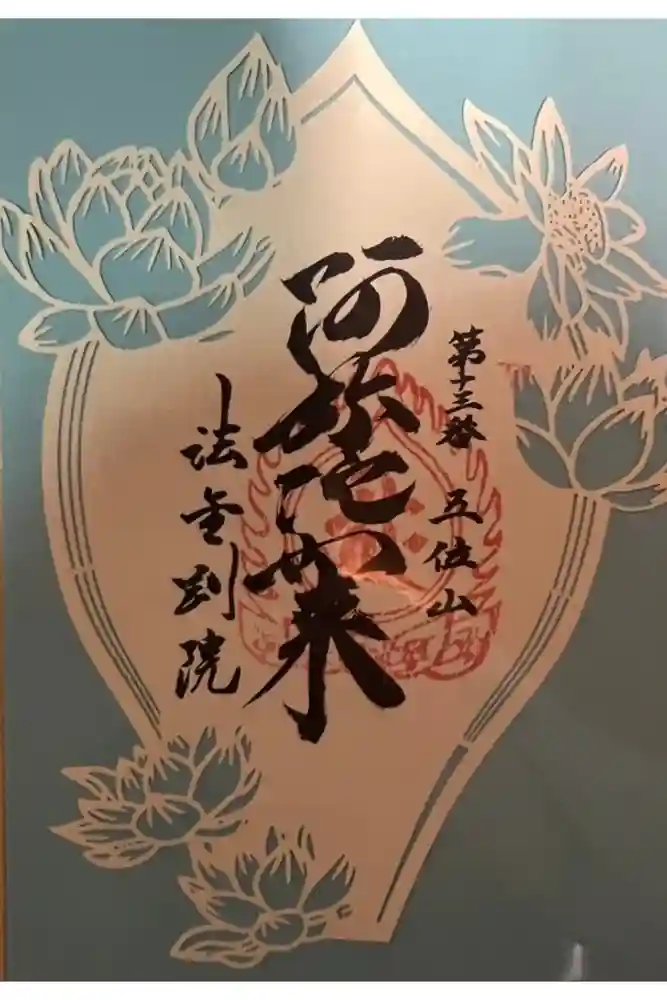 第十三番
五位山
阿弥陀如来
法金剛院